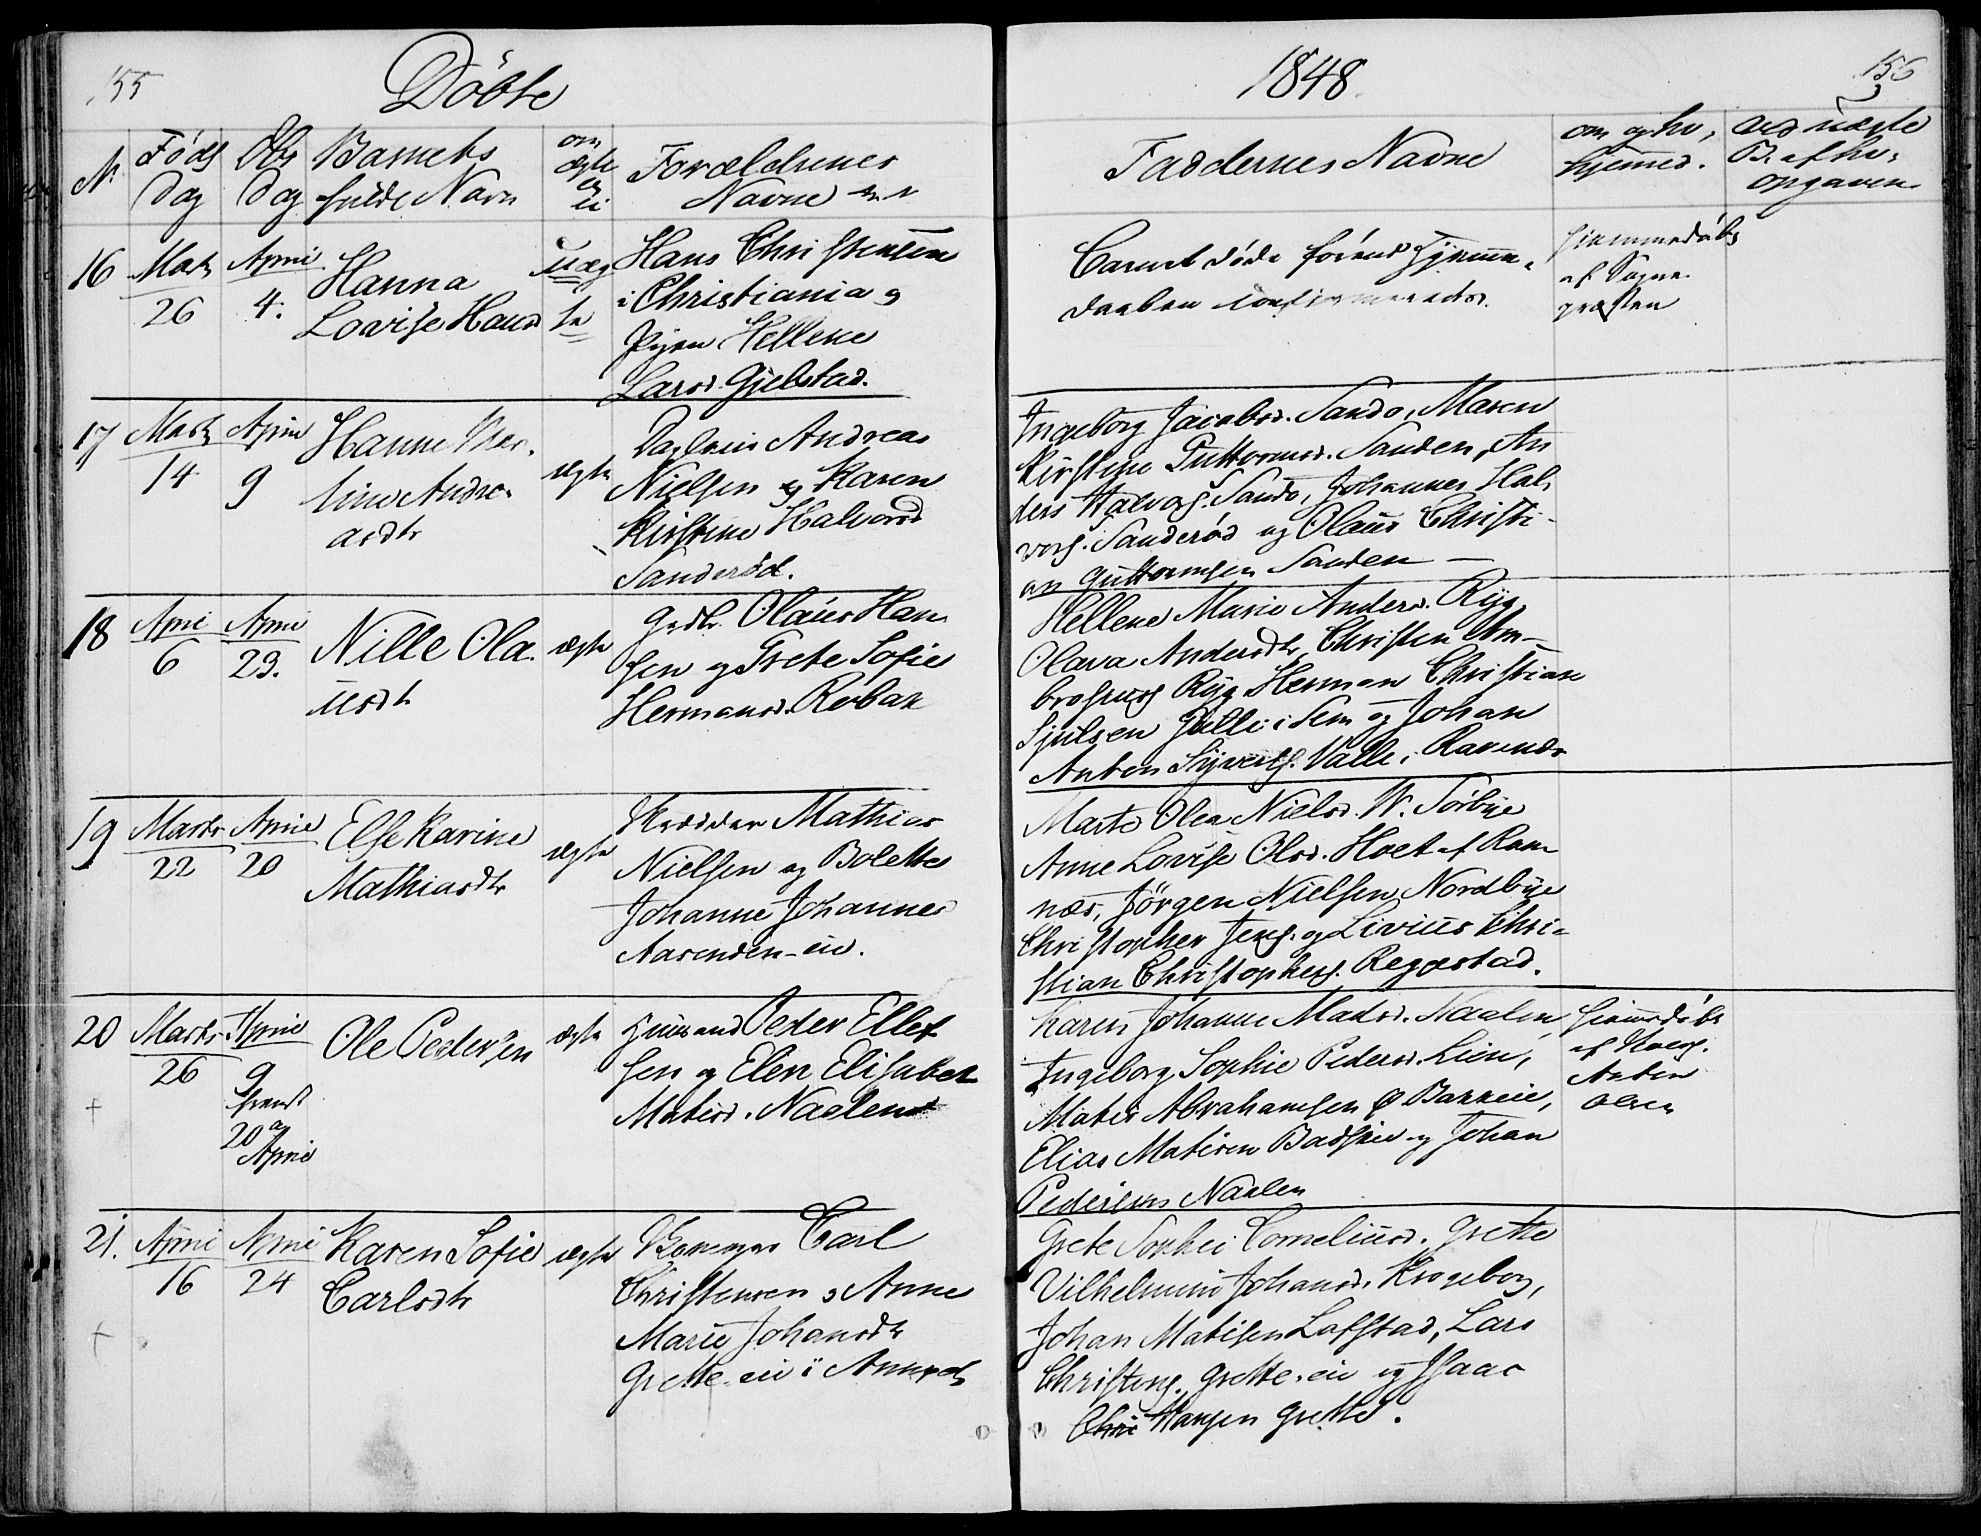 155
Döbte
1848
156
N.
Föds
Dag
Dbs
Dag
Barnets
fulde Navn
om
ægte
ei
Forældrenes
Navne
Faddernes Navne
om og hv.
hjemmed.
16
Marts
26
April
4.
Hanna
Lovise Hansd
uæg
te
Hans Christensen
i Christiania og
Pigen Hellene
Larsd. Gjelstad.
Barnet döde förend Hjemme-
daaben confirmeredes.
hiemmedöbt
af Sogne
præsten
17
Marts
14
April
9
Hanne
Andre-
asdtr
ægte
Andreas
Nielsen og Karen
Kirstine Halvorsd
Sanderöd.
Ingeborg Jacobsd. Sandö, Maren
Kirstine Guttormsd. Sanden, An
ders Halvors. Sandö, Johannes Hal-
vors. Sanderöd og Olaus Christi-
an Guttormsen Sanden
18
April
6
April
23.
Nille Ola
usdtr
ægte
Gdbr. Olaus Han
sen og Grete Sofie
Hermansd. Robak
Hellene Marie Andersd. Ryg,
Olava Andersdtr, Christen Am-
brosius Ryg, Herman Christian
Gulli i Sem og Johan
Anton Syverts. Valle i Ramnæs
19
Marts
22
April
20
Else Karine
Mathiasdtr
ægte
Skrædder Mathias
Nielsen og Bolette
Johanne Johannes
Aasenden-eie.
Marte Olea Nielsd. N. Sörbye
Anne Lovise Olsd. Hoet af Ram
næs, Jörgen Nielsen Nordbye
Christopher Jens. og Livius Chri-
stian Christophers. Reggestad.
20
Marts
26
April
9
fremst
20 a
April
Ole Pedersen
ægte
Huusmand Peder Ellef
sen og Elen Elisabet
Matisd. Naalen
Karen Johanne Madsd. Naalen,
Ingeborg Sophie Pedersd. Lien,
Matis Abrahamsen Ø Bakkeie,
Elias Matisen og Johan
Pedersens Naalen
hiemdöbt
af
Anton
Olsen
21.
April
16
April
24
Karen Sofie
Carlsdtr
ægte
Carl
Christensen og Anne
Marie Johansdtr
Grette-eie i
Grete Sophie Corneliusd. Grette
Vilhelmine Johansd. Krogeborg,
Johan Matisen Lofstad, Lars
Christens. Grette-eie og Isaac
Chri Hansen Grette.